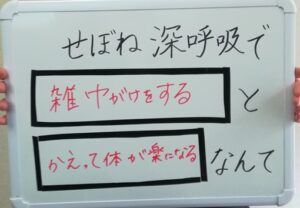 せぼね深呼吸で
雑巾がけをする
と
かえって体が楽になる
なんて